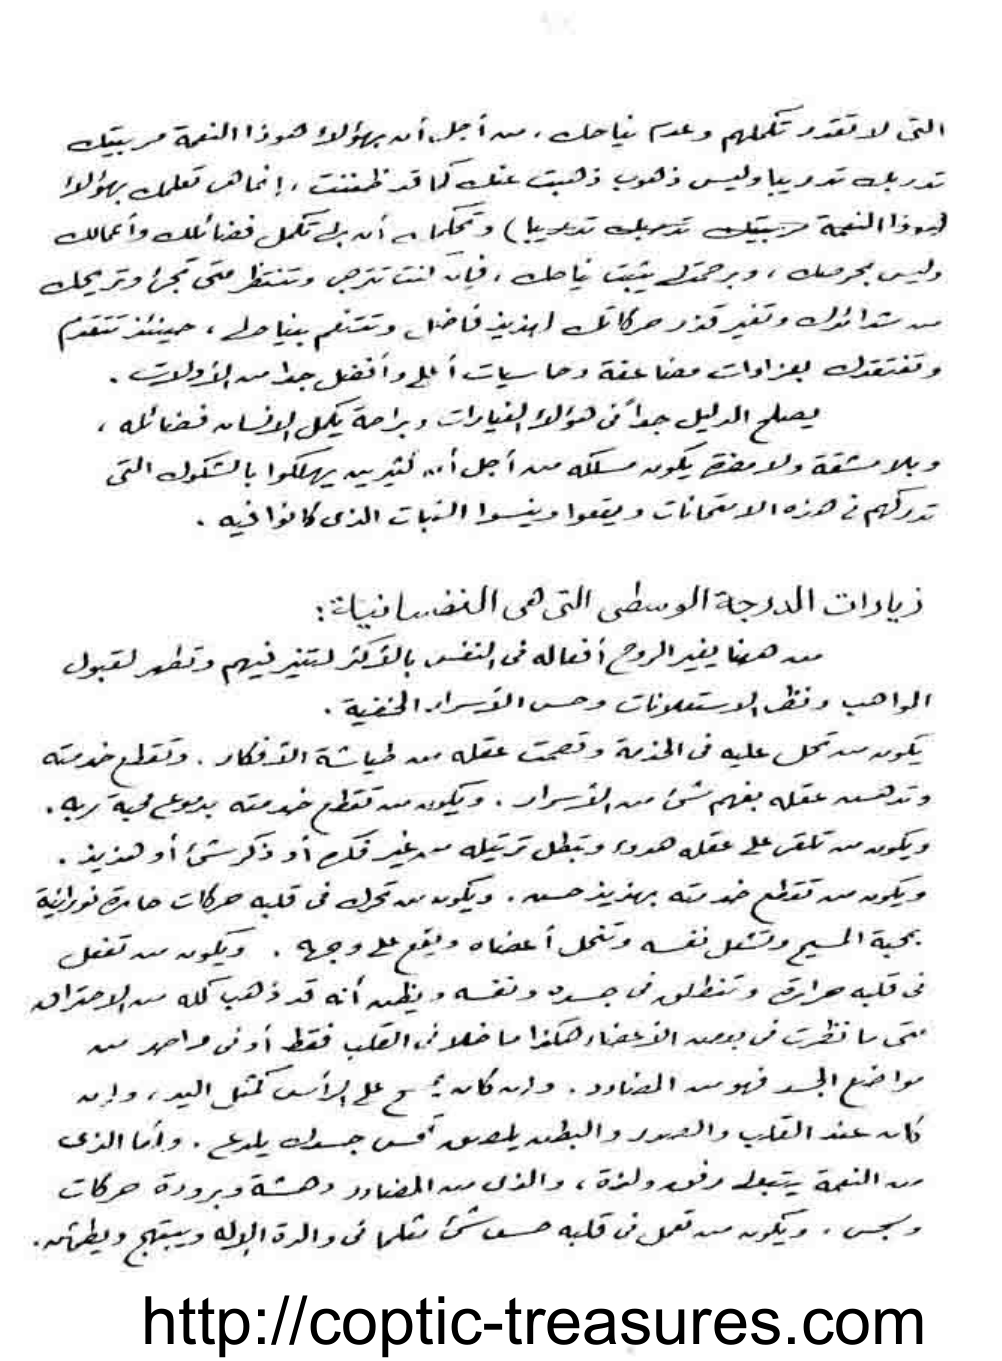 التى لا تقدر تكملهم وعدم نياحك ، من أجل أن بهؤلاء هوذا النعمة مربيتك
تدربك تدريبا وليس ذهوب ذهبت عنك كما قد ظننت ، إنما هى تعلمك بهؤلاء
(هوذا النعمة مربيتك تدربك تدريبا) وتحكما به أن بى تكمل فضائلك وأعمالك
وليس بحرصك ، وبرحمتى يثبت نياحك ، فإن كنت تترجى وتنتظر متى تجئ وتريحك
من شدائدك وتغير قذر حركاتك لهذيذ فاضل وتتنعم بنياحى ، حينئذ تتقدم
وتفتقدك بعزاوات مضاعفة وحاسيات أعلى وأفضل جدا من الأولات .
يصلح الدليل جداً فى هؤلاء الغيارات وبراحة يكمل الإنسان فضائله ،
وبلا مشقة ولا مضرة يكون مسلكه من أجل أن كثيرين يهلكوا بالشكوك التى
تدركهم فى هذه الامتحانات ويقعوا وينسوا الثبات الذى كانوا فيه .
زيادات الدرجة الوسطى التى هى النفسانية :
من ههنا يغير الروح أفعاله فى النفس بالأكثر لتتغير فيهم وتطهر لقبول
المواهب ونظر الاستعلانات وحس الأسرار الخفية .
يكون من تحل عليه فى الخدمة وتصمت عقله من طياشة الأفكار . وتقطع خدمته
وتدهش عقله بفهم شئ من الأسرار . ويكون من تقطع خدمته بدموع محبة ربه .
ويكون من تلقى على عقله هدوء وتبطل ترتيله من غير فكر أو ذكر شئ أو هذيذ .
ويكون من تقطع خدمته بهذيذ حسن . ويكون من تحرك فى قلبه حركات حارة نورانية
بمحبة المسيح وتشعل نفسه وتنحل أعضاه ويقع على وجهه . ويكون من تفعل
فى قلبه حرارة وتنطلق فى جسده ونفسه ويظن أنه قد ذهب كله من الاحتراق
متى ما نظرت فى بعض الأعضاء هكذا ما خلا فى القلب فقط أو فى واحد من
مواضع الجسد فهو من المضادد . وإن كان يمسح على الرأس كمثل اليد ، وإن
كان عند القلب والصدر والبطن يلصق بمس جسدك يلدع . وأما الذى
من النعمة يتبعه رفق ولذة ، والذى من المضادد دهشة وبرودة حركات
وسجس . ويكون من تعمل فى قلبه حسن شئ مثلما فى والدة الإله ويبتهج ويطمئن .
http://coptic-treasures.com